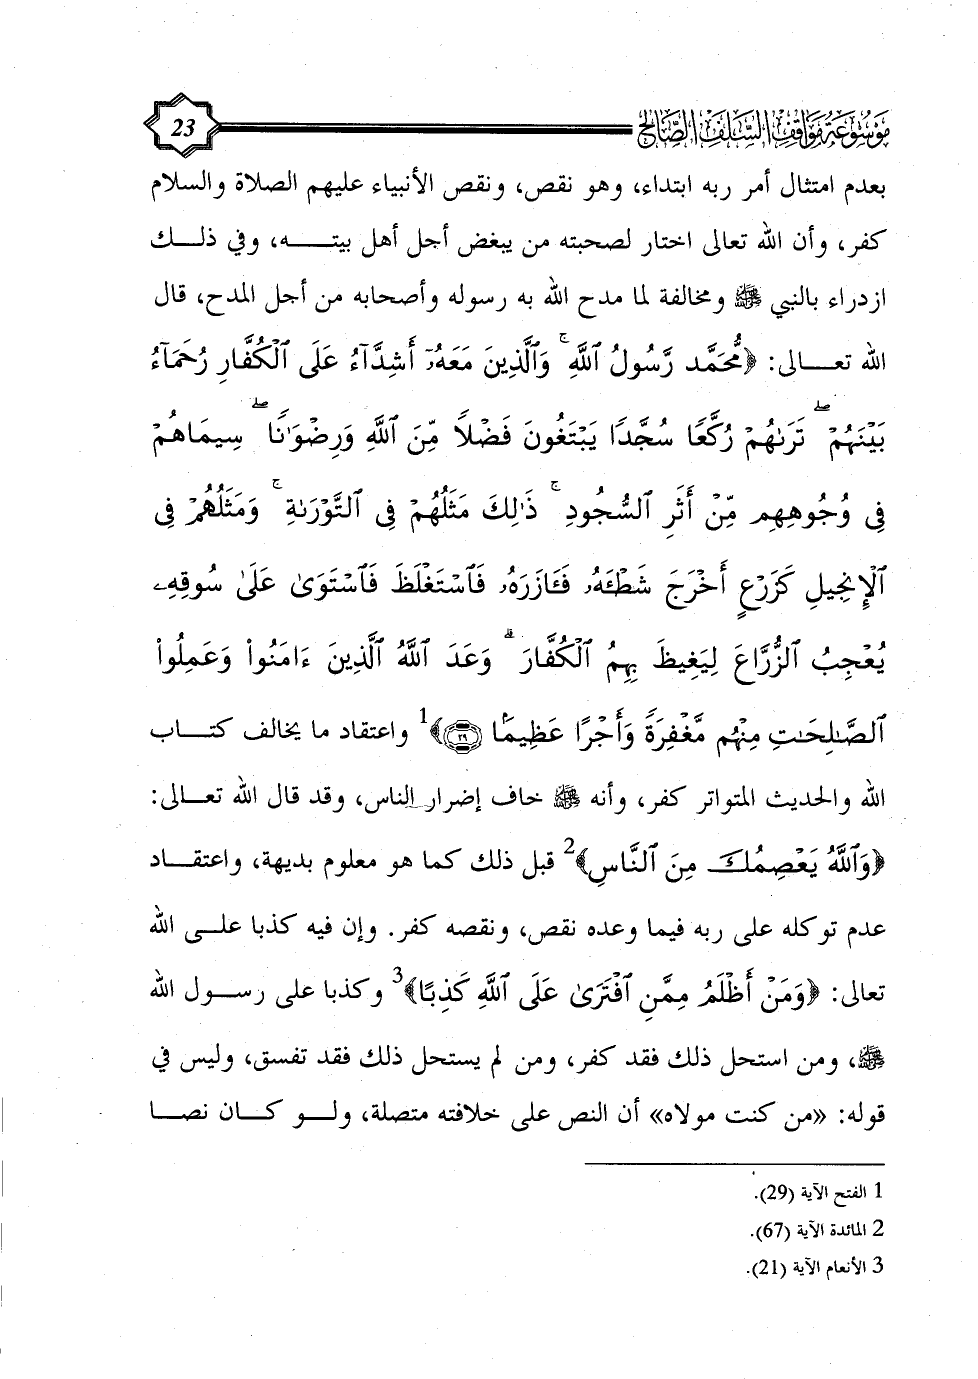 موسوعة مواقف السلف الصالح
23
بعدم امتثال أمر ربه ابتداء، وهو نقص، ونقص الأنبياء عليهم الصلاة والسلام
كفر، وأن الله تعالى اختار لصحبته من يبغض أجل أهل بيتـــه، وفي ذلـك
ازدراء بالنبي ﷺ ومخالفة لما مدح الله به رسوله وأصحابه من أجل المدح، قال
الله تعـــالى: ﴿مُّحَمَّد رَّسُولُ ٱللَّهِ ۚ وَٱلَّذِينَ مَعَهُۥٓ أَشِدَّآءُ عَلَى ٱلْكُفَّارِ رُحَمَآءُ
بَيْنَهُمْ ۖ تَرَىٰهُمْ رُكَّعًا سُجَّدًا يَبْتَغُونَ فَضْلًا مِّنَ ٱللَّهِ وَرِضْوَٰنًا ۖ سِيمَاهُمْ
فِى وُجُوهِهِم مِّنْ أَثَرِ ٱلسُّجُودِ ۚ ذَٰلِكَ مَثَلُهُمْ فِى ٱلتَّوْرَىٰةِ ۚ وَمَثَلُهُمْ فِى
ٱلْإِنجِيلِ كَزَرْعٍ أَخْرَجَ شَطْـَٔهُۥ فَـَٔازَرَهُۥ فَٱسْتَغْلَظَ فَٱسْتَوَىٰ عَلَىٰ سُوقِهِۦ
يُعْجِبُ ٱلزُّرَّاعَ لِيَغِيظَ بِهِمُ ٱلْكُفَّارَ ۗ وَعَدَ ٱللَّهُ ٱلَّذِينَ ءَامَنُوا۟ وَعَمِلُوا۟
ٱلصَّـٰلِحَـٰتِ مِنْهُم مَّغْفِرَةً وَأَجْرًا عَظِيمًۢا ۝٢٩﴾1 واعتقاد ما يخالف كتـــاب
الله والحديث المتواتر كفر، وأنه ﷺ خاف إضرار الناس، وقد قال الله تعـــالى:
﴿وَٱللَّهُ يَعْصِمُكَ مِنَ ٱلنَّاسِ﴾2 قبل ذلك كما هو معلوم بديهة، واعتقـــاد
عدم توكله على ربه فيما وعده نقص، ونقصه كفر. وإن فيه كذبا علـــى الله
تعالى: ﴿وَمَنْ أَظْلَمُ مِمَّنِ ٱفْتَرَىٰ عَلَى ٱللَّهِ كَذِبًا﴾3 وكذبا على رسـول الله
ﷺ، ومن استحل ذلك فقد كفر، ومن لم يستحل ذلك فقد تفسق، وليس في
قوله: «من كنت مولاه» أن النص على خلافته متصلة، ولـــو كـــان نصـــا
1 الفتح الآية (29).
2 المائدة الآية (67).
3 الأنعام الآية (21).